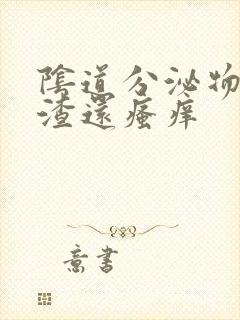 陰道分泌物
渣還瘙痒
意書